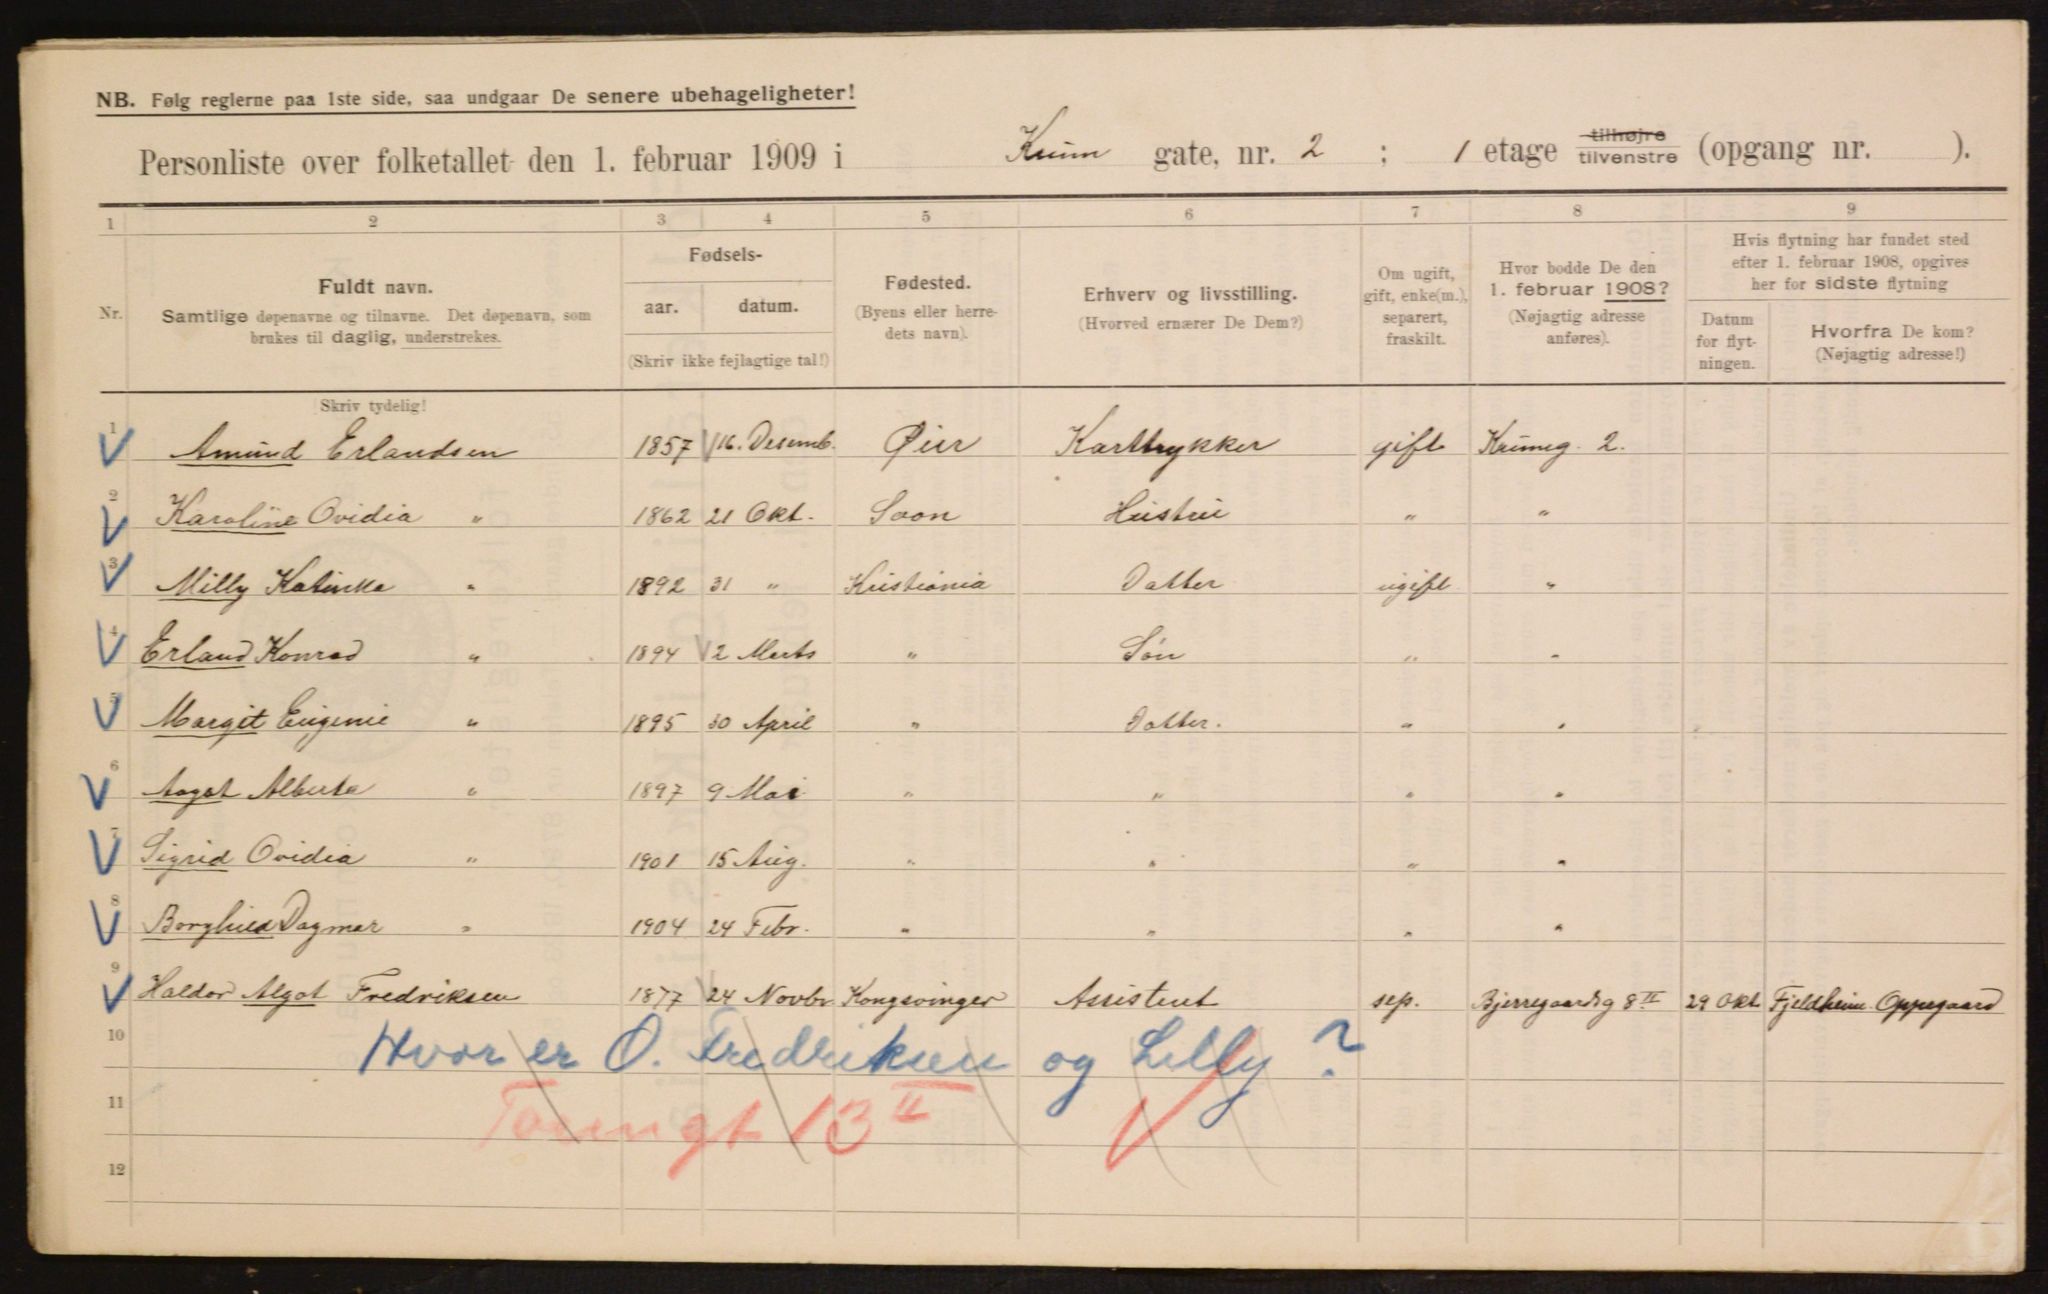 NB. Følg reglerne paa 1ste side, saa undgaar De senere ubehageligheter!
Personliste over folketallet den 1. februar 1909 i Krum gate, nr. 2 ; 1 etage tilhøjre tilvenstre (opgang nr. ).
1 2 3 4 5 6 7 8 9
Nr.
Fuldt navn.
Samtlige døpenavne og tilnavne. Det døpenavn, som
brukes til daglig, understrekes.
Fødsels-
aar. datum.
(Skriv ikke fejlagtige tal!)
Fødested.
(Byens eller herre-
dets navn).
Erhverv og livsstilling.
(Hvorved ernærer De Dem?)
Om ugift,
gift, enke(m.),
separert,
fraskilt.
Hvor bodde De den
1. februar 1908?
(Nøjagtig adresse
anføres).
Hvis flytning har fundet sted
efter 1. februar 1908, opgives
her for sidste flytning
Datum
for flyt-
ningen.
Hvorfra De kom?
(Nøjagtig adresse!)
Skriv tydelig!
1 Amund Erlandsen 1857 16. Desemb. Øier Karttrykker gift Krumg. 2.
2 Karoline Ovidia " 1862 21 Okt. Soon Hustru " "
3 Milly Katinka " 1892 31 " Kristiania Datter ugift "
4 Erland Konrad " 1894 2 Marts " Søn " "
5 Margit Eugenie " 1895 30 April " Datter. " "
6 Aagot Alberta " 1897 9 Mai " " " "
7 Sigrid Ovidia " 1901 15 Aug. " " " "
8 Borghild Dagmar " 1904 24 Febr. " " " "
9 Haldor Algot Fredriksen 1877 24 Novbr Kongsvinger Assistent sep. Bjerregaardsg 8 II 29 Okt Fjeldheim Oppegaard
10 Hvor er O. Fredriksen og Lilly?
11 13 II
12